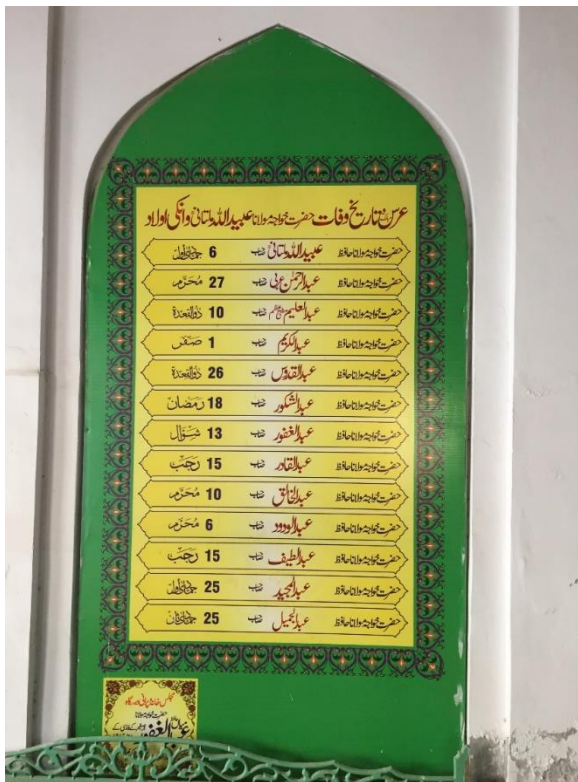 عرس تاریخ وفات حضرت خواجہ مولانا عبیداللہ ملتانیؒ و انکی اولاد
حضرت خواجہ مولانا حافظ عبیداللہ ملتانیؒ صاحب 6 جمادی اول
حضرت خواجہ مولانا حافظ عبدالرحمٰن عربی صاحب 27 محرم
حضرت خواجہ مولانا حافظ عبدالعلیم صاحب 10 ذوالقعدة
حضرت خواجہ مولانا حافظ عبدالکریم صاحب 1 صفر
حضرت خواجہ مولانا حافظ عبدالقدوس صاحب 26 ذوالقعدة
حضرت خواجہ مولانا حافظ عبدالشکور صاحب 18 رمضان
حضرت خواجہ مولانا حافظ عبدالغفور صاحب 13 شوال
حضرت خواجہ مولانا حافظ عبدالقادر صاحب 15 رجب
حضرت خواجہ مولانا حافظ عبدالخالق صاحب 10 محرم
حضرت خواجہ مولانا حافظ عبدالودود صاحب 6 محرم
حضرت خواجہ مولانا حافظ عبدالطیف صاحب 15 رجب
حضرت خواجہ مولانا حافظ عبدالمجید صاحب 25 جمادی اول
حضرت خواجہ مولانا حافظ عبدالجمیل صاحب 25 جمادی ثانی
حضرت خواجہ مولانا